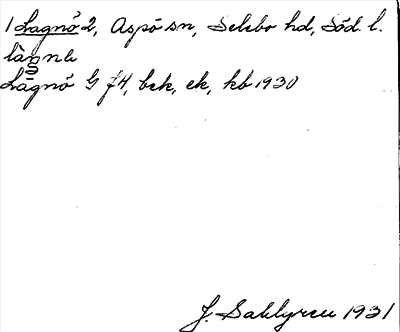 1 Lagnö 2, Aspö sn, Selebo hd, Söd. l.
Lågnö G f4, bek, ek, kb 1930
J. Sahlgren 1931